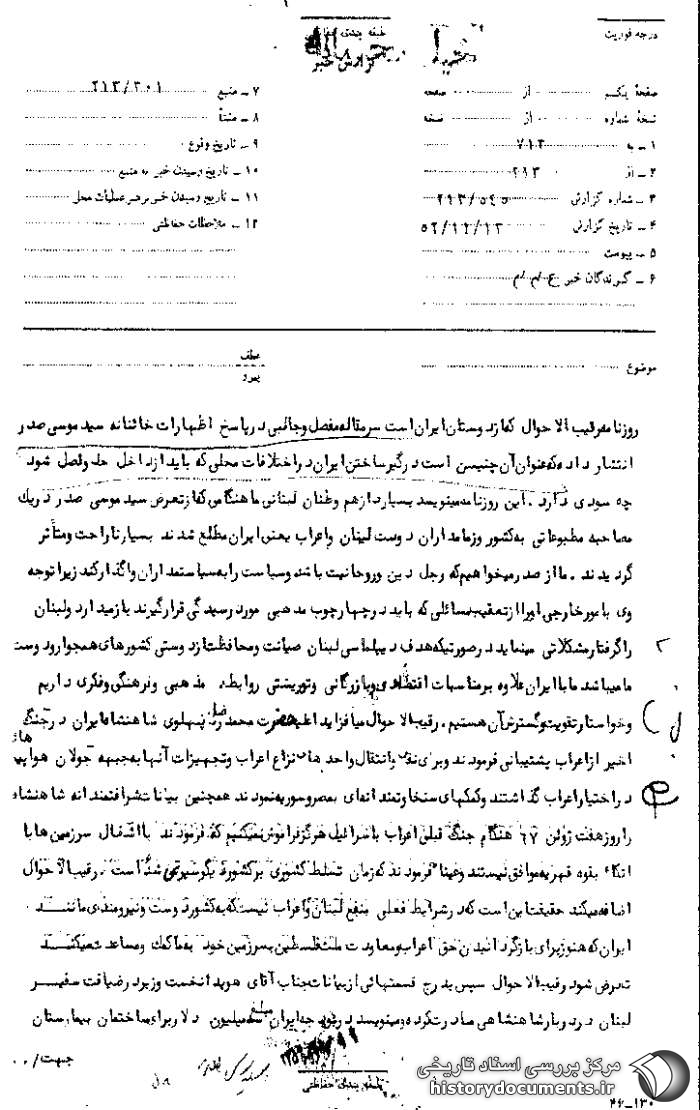 درجه فوریت
طبقه بندی حفاظتی
خیلی محرمانه
گزارش خبر
صفحهٔ یکم از صفحه
نسخهٔ شماره از نسخه
۱ – به ۷۱۳
۲ – از ۲۱۳
۳ – شماره گزارش ۲۱۳/۵۴۵
۴ – تاریخ گزارش ۵۲/۱۲/۱۳
۵ – پیوست
۶ – گیرندگان خبر
۷ – منبع ۲۱۳/۳۰۱
۸ – منشأ
۹ – تاریخ وقوع
۱۰ – تاریخ رسیدن خبر به منبع
۱۱ – تاریخ رسیدن خبر به رهبر عملیات محل
۱۲ – ملاحظات حفاظتی
موضوع
عطف
پیرو
روزنامه رقیب الاحوال که از دوستان ایران است سرمقاله مفصل و جالبی در پاسخ اظهارات خائنانه سید موسی صدر
انتشار داده که عنوان آن چنین است درگیر ساختن ایران در اختلافات محلی که باید از داخل حل و فصل شود
چه سودی دارد . این روزنامه مینویسد بسیار از هم وطنان لبنانی ما هنگامی که از تعرض سید موسی صدر در یک
مصاحبه مطبوعاتی به کشور و زمامداران دوست لبنان و اعراب یعنی ایران مطلع شدند بسیار ناراحت و متأثر
گردیدند . ما از صدر میخواهیم که رجل دین و روحانیت باشد و سیاست را به سیاستمداران واگذار کند زیرا توجه
وی بامور خارجی او را از تعقیب مسائلی که باید در چهارچوب مذهبی مورد رسیدگی قرار گیرند باز میدارد و لبنان
را گرفتار مشکلاتی مینماید در صورتیکه هدف دیپلماسی لبنان صیانت و محافظت از دوستی کشورهای همجوار و دوست
ما میباشد ما با ایران علاوه بر مناسبات اقتصادی و بازرگانی و توریستی روابط مذهبی و فرهنگی و فکری داریم
و خواستار تقویت و گسترش آن هستیم . رقیب الاحوال میافزاید اعلیحضرت محمد رضا پهلوی شاهنشاه ایران در جنگ های
اخیر از اعراب پشتیبانی فرمودند و برای نقل و انتقال واحدهای نزاع اعراب و تجهیزات آنها به جبهه جولان هواپیما
در اختیار اعراب گذاشتند و کمکهای سخاوتمندانه ای بمصر و سوریه نمودند همچنین بیانات شرافتمندانه شاهنشاه
را روز هفت ژوئن ۶۷ هنگام جنگ قبلی اعراب با اسرائیل هرگز فراموش نمیکنیم که فرمودند با اشغال سرزمین ها با
اتکاء بقوه قهریه موافق نیستند و عینا فرمودند که زمان تسلط کشوری بر کشور دیگر سپری شده است . رقیب الاحوال
اضافه میکند حقیقت این است که در شرایط فعلی بنفع لبنان و اعراب نیست که به کشور دوست و نیرومندی مانند
ایران که هنوز برای بازگرداندن حق اعراب و معاودت ملت فلسطین بسرزمین خود به ما کمک و مساعدت میکنند
تعرض شود رقیب الاحوال سپس بدرج قسمتهائی از بیانات جناب آقای هویدا نخست وزیر در ضیافت سفیر
لبنان در دربار شاهنشاهی مبادرت کرده و مینویسد در بودجه ایران مبلغ سه میلیون دلار برای ساختمان بیمارستان
جهت/۰۰
طبقه بندی حفاظتی
۴۶-۱۳۰
مرکز بررسی اسناد تاریخی
historydocuments.ir